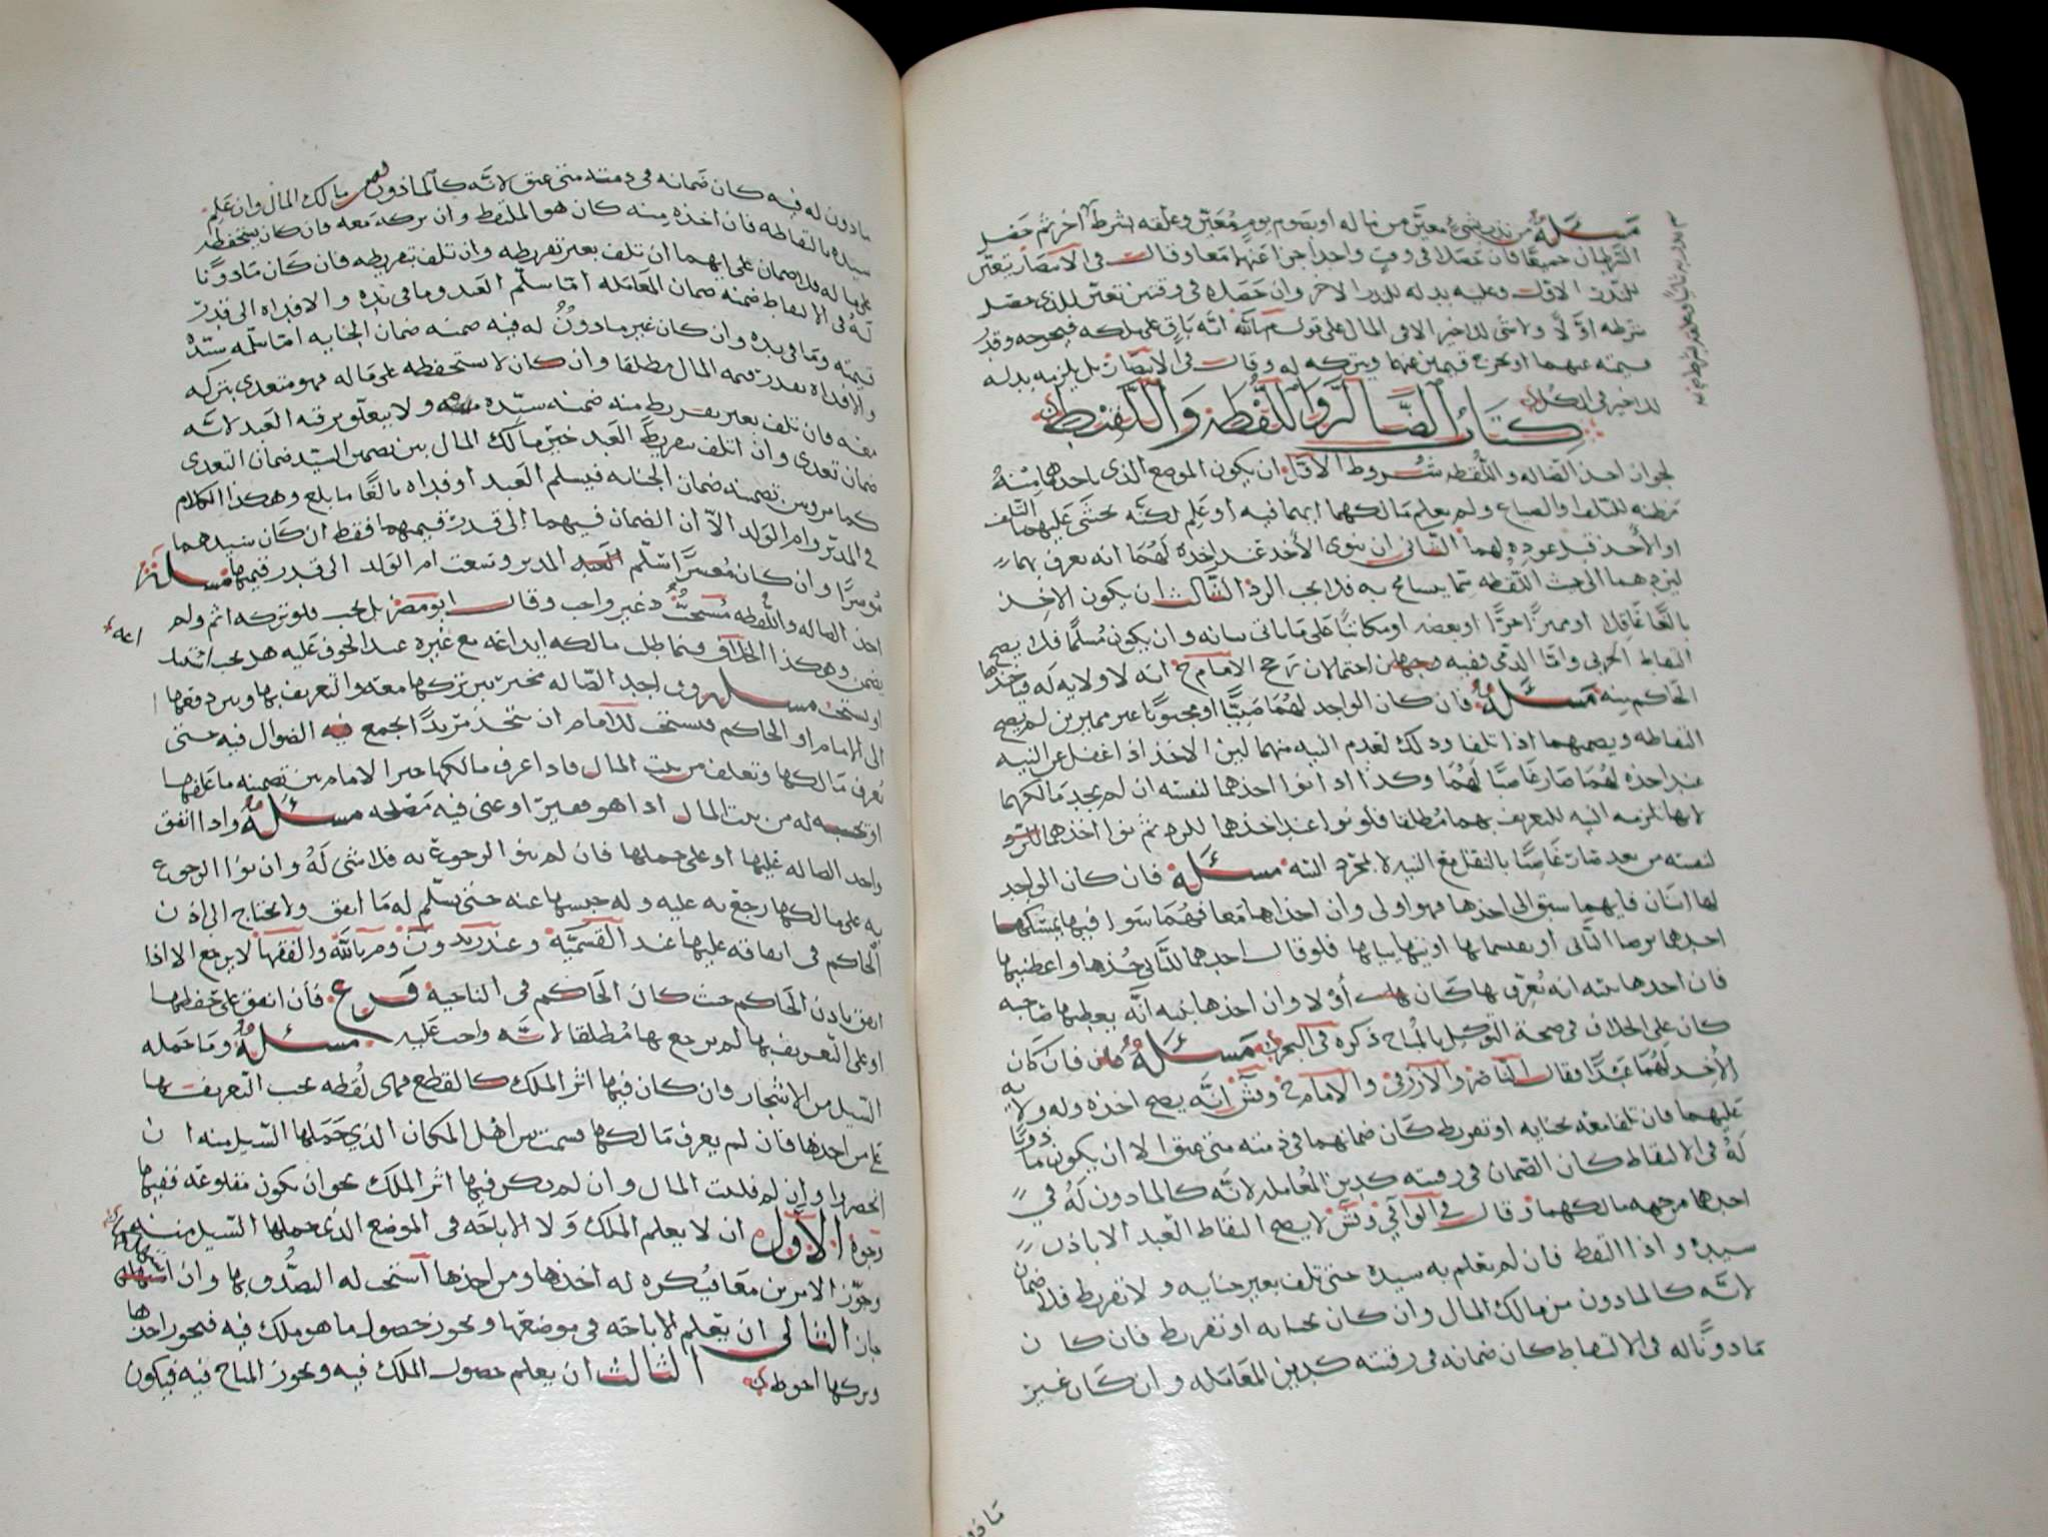 مسئلة من نذر بشيء معين من ماله او بصوم يوم معين وعلقه بشرط آخر ثم حصل
الشرطان جميعًا فان حصلا في وقت واحد اجزا عنهما معا وقال في الانتصار يتعين
للنذر الاول وعليه بدله للنذر الاخر وان حصلا في وقتين تعين للذي حصل
شرطه اوّلًا ولا شي للاخير الا في المال على قول م بالله انه باقٍ على ملكه فيخرجه وقدر
قيمته عنهما او يخرج قيمتين عنهما ويتركه له وقال في الانتصار بل يلزمه بدله
للاخير في الكل
كتاب الضالة واللقطة واللقيط
لجواز اخذ الضاله واللقطه شروط الاول ان يكون الموضع الذي ياخذهما منه
مظنه للتلف والضياع ولم يعلم مالكهما انهما فيه او علم لكنه يخشى عليهما التلف
او الاخذ قبل عوده لهما الثاني ان ينوى الأخذ عند اخذه لهما انه يعرف بهما
ليردهما الى حيث اللقطه مما يسامح به فلا يجب الرد الثالث ان يكون الاخذ
بالغًا عاقلا او مميزًا حرًّا او بعضه او مكاتبًا على ما ياتي بيانه وان يكون مسلمًا فلا يصح
التقاط الحربي واما الذمي ففيه وجهان احتمالان رجح الامام ح انه لا ولايه له فياخذها
الحاكم منه مسئلة فان كان الواجد لهما صبيًّا او مجنونًا غير مميزين لم يصح
التقاطه ويضمهما اذا تلفا وذلك لعدم النيه منهما لبن الاخذ اذا غفل عن النيه
عند اخذه لهما صار غاصبًا لهما وكذا اذا نوا اخذهما لنفسه ان لم يجد مالكهما
لانها تلزمه النيه للتعريف بهما مطلقا فلو نوا عند اخذهما للرد ثم نوا اخذهما
لنفسه من بعد صار غاصبًا بالنقل مع النيه لا بمجرد النيه مسئلة فان كان الواجد
لها اثنان فايهما سبق الى اخذها فهو اولى وان اخذاها معا فهما سوا فيها يمسكها
احدهما برضا الثاني او يقسمانها او يتهاييا بها فلو قال احدهما للثاني خذها واعطنيها
فان اخذها بنيه انه يعرف بها كان اولا وان اخذها بنيه انه يعطيها صاحبه
كان على الخلاف في صحة التوكيل بالمباح ذكره في البحر مسئلة فان كان
الاخذ لهما عبدًا فقال الناصر والازرقي والامام ح وش انه يصح اخذه وله ولايه
عليهما فان تلفا معه بجنايه او تفريط كان ضمانهما في ذمته متى عتق الا ان يكون ماذونًا
له في الالتقاط كان الضمان في رقبته كدين المعامله لانه كالماذون له في
اخذها من جهه مالكهما وقال في الوافي وش لا يصح التقاط العبد الا باذن
سيده واذا التقط فان لم يعلم به سيده حتى تلف بغير جنايه ولا تفريط فلا ضمان
لانه كالماذون من مالك المال وان كان بجنايه او تفريط فان كان
ماذونًا له في الالتقاط كان ضمانه في رقبته كدين المعامله وان كان غير
ماذون له فيه كان ضمانه في ذمته متى عتق لانه كالماذون من مالك المال وان علم
سيده بالتقاطه فان اخذه منه كان هو الملتقط وان تركه معه فان كان يستحفظه
على ماله فلا ضمان على ايهما ان تلف بغير تفريطه وان تلف بتفريطه فان كان ماذونًا
له في الالتقاط ضمنه ضمان المعامله اما سلم العبد وما في يده والا فداه الى قدر
قيمته وما في يده وان كان غير ماذون له فيه ضمنه ضمان الجنايه اما سلمه سيده
والا فداه بقدر قيمه المال مطلقا وان كان لا يستحفظه على ماله فهو متعدى بتركه
معه فان تلف بغير تفريط منه ضمنه سيده ولا يتعلق برقبه العبد لانه
ضمان تعدى وان اتلف بتفريط العبد خير مالك المال بين تضمين السيد ضمان التعدى
كما مر وبين تضمينه ضمان الجنايه فيسلم العبد او فداه بالغًا ما بلغ وهكذا الكلام
في المدبر وام الولد الا ان الضمان فيهما الى قدر قيمتهما فقط ان كان سيدهما
موسرًا وان كان معسرًا سلم المدبر وسعت ام الولد الى قدر قيمتها مسئلة
اخذ الضاله واللقطه مستحب غير واجب وقال ابو مضر بل يجب فلو تركه اثم ولم
يضمن وهكذا الخلاف فيما طلب مالكه ايداعه مع غيره عند الخوف عليه هل يجب
او يستحب مسئلة وواجد الضاله مخير بين تركها معه والتعريف بها وبين دفعها
الى الامام او الحاكم فيستحب للامام ان يتخذ مربدًا لجمع الضوال فيه حتى
يعرف مالكها وتعلف من بيت المال فاذا عرف مالكها خير الامام بين تضمينه ما علفها
او له من بيت المال اذا هو فقير او غني فيه مصلحه مسئلة واذا انفق
واجد الضاله عليها او على حملها فان لم ينو الرجوع به فلا شي له وان نوا الرجوع
به على مالكها رجع به عليه وله حبسها عنه حتى يسلم له ما انفق ولا يحتاج الى اذن
الحاكم في انفاقه عليها عند القسميه وعند زيد ون وم بالله والفقها لا يرجع الا اذا
انفق باذن الحاكم حيث كان الحاكم في الناحيه فرع فان انفق على حفظها
او على التعريف بها لم يرجع بها مطلقا لانه واجب عليه مسئلة وما حمله
السيل من الاشجار وان كان فيها اثر الملك كالقطع فهي لقطه يجب التعريف بها
على من اخذها فان لم يعرف مالكها قسمت بين اهل المكان الذي حملها السيل منه ان
انحصروا وان لم فلبيت المال وان لم يكن فيها اثر الملك نحو ان يكون مقلوعه ففيها
وجوه الاول ان لا يعلم الملك ولا الاباحه في الموضع الذي حملها السيل منه
وجوز الامرين معا فيكره له اخذها ومن اخذها استحب له التصدق بها وان
جاز الثاني ان يعلم الاباحه في موضعها ويجوز حصول ما هو ملك فيه فيجوز اخذها
وتركها احوط الثالث ان يعلم حصول الملك فيه ويجوز المباح فيه فيكون